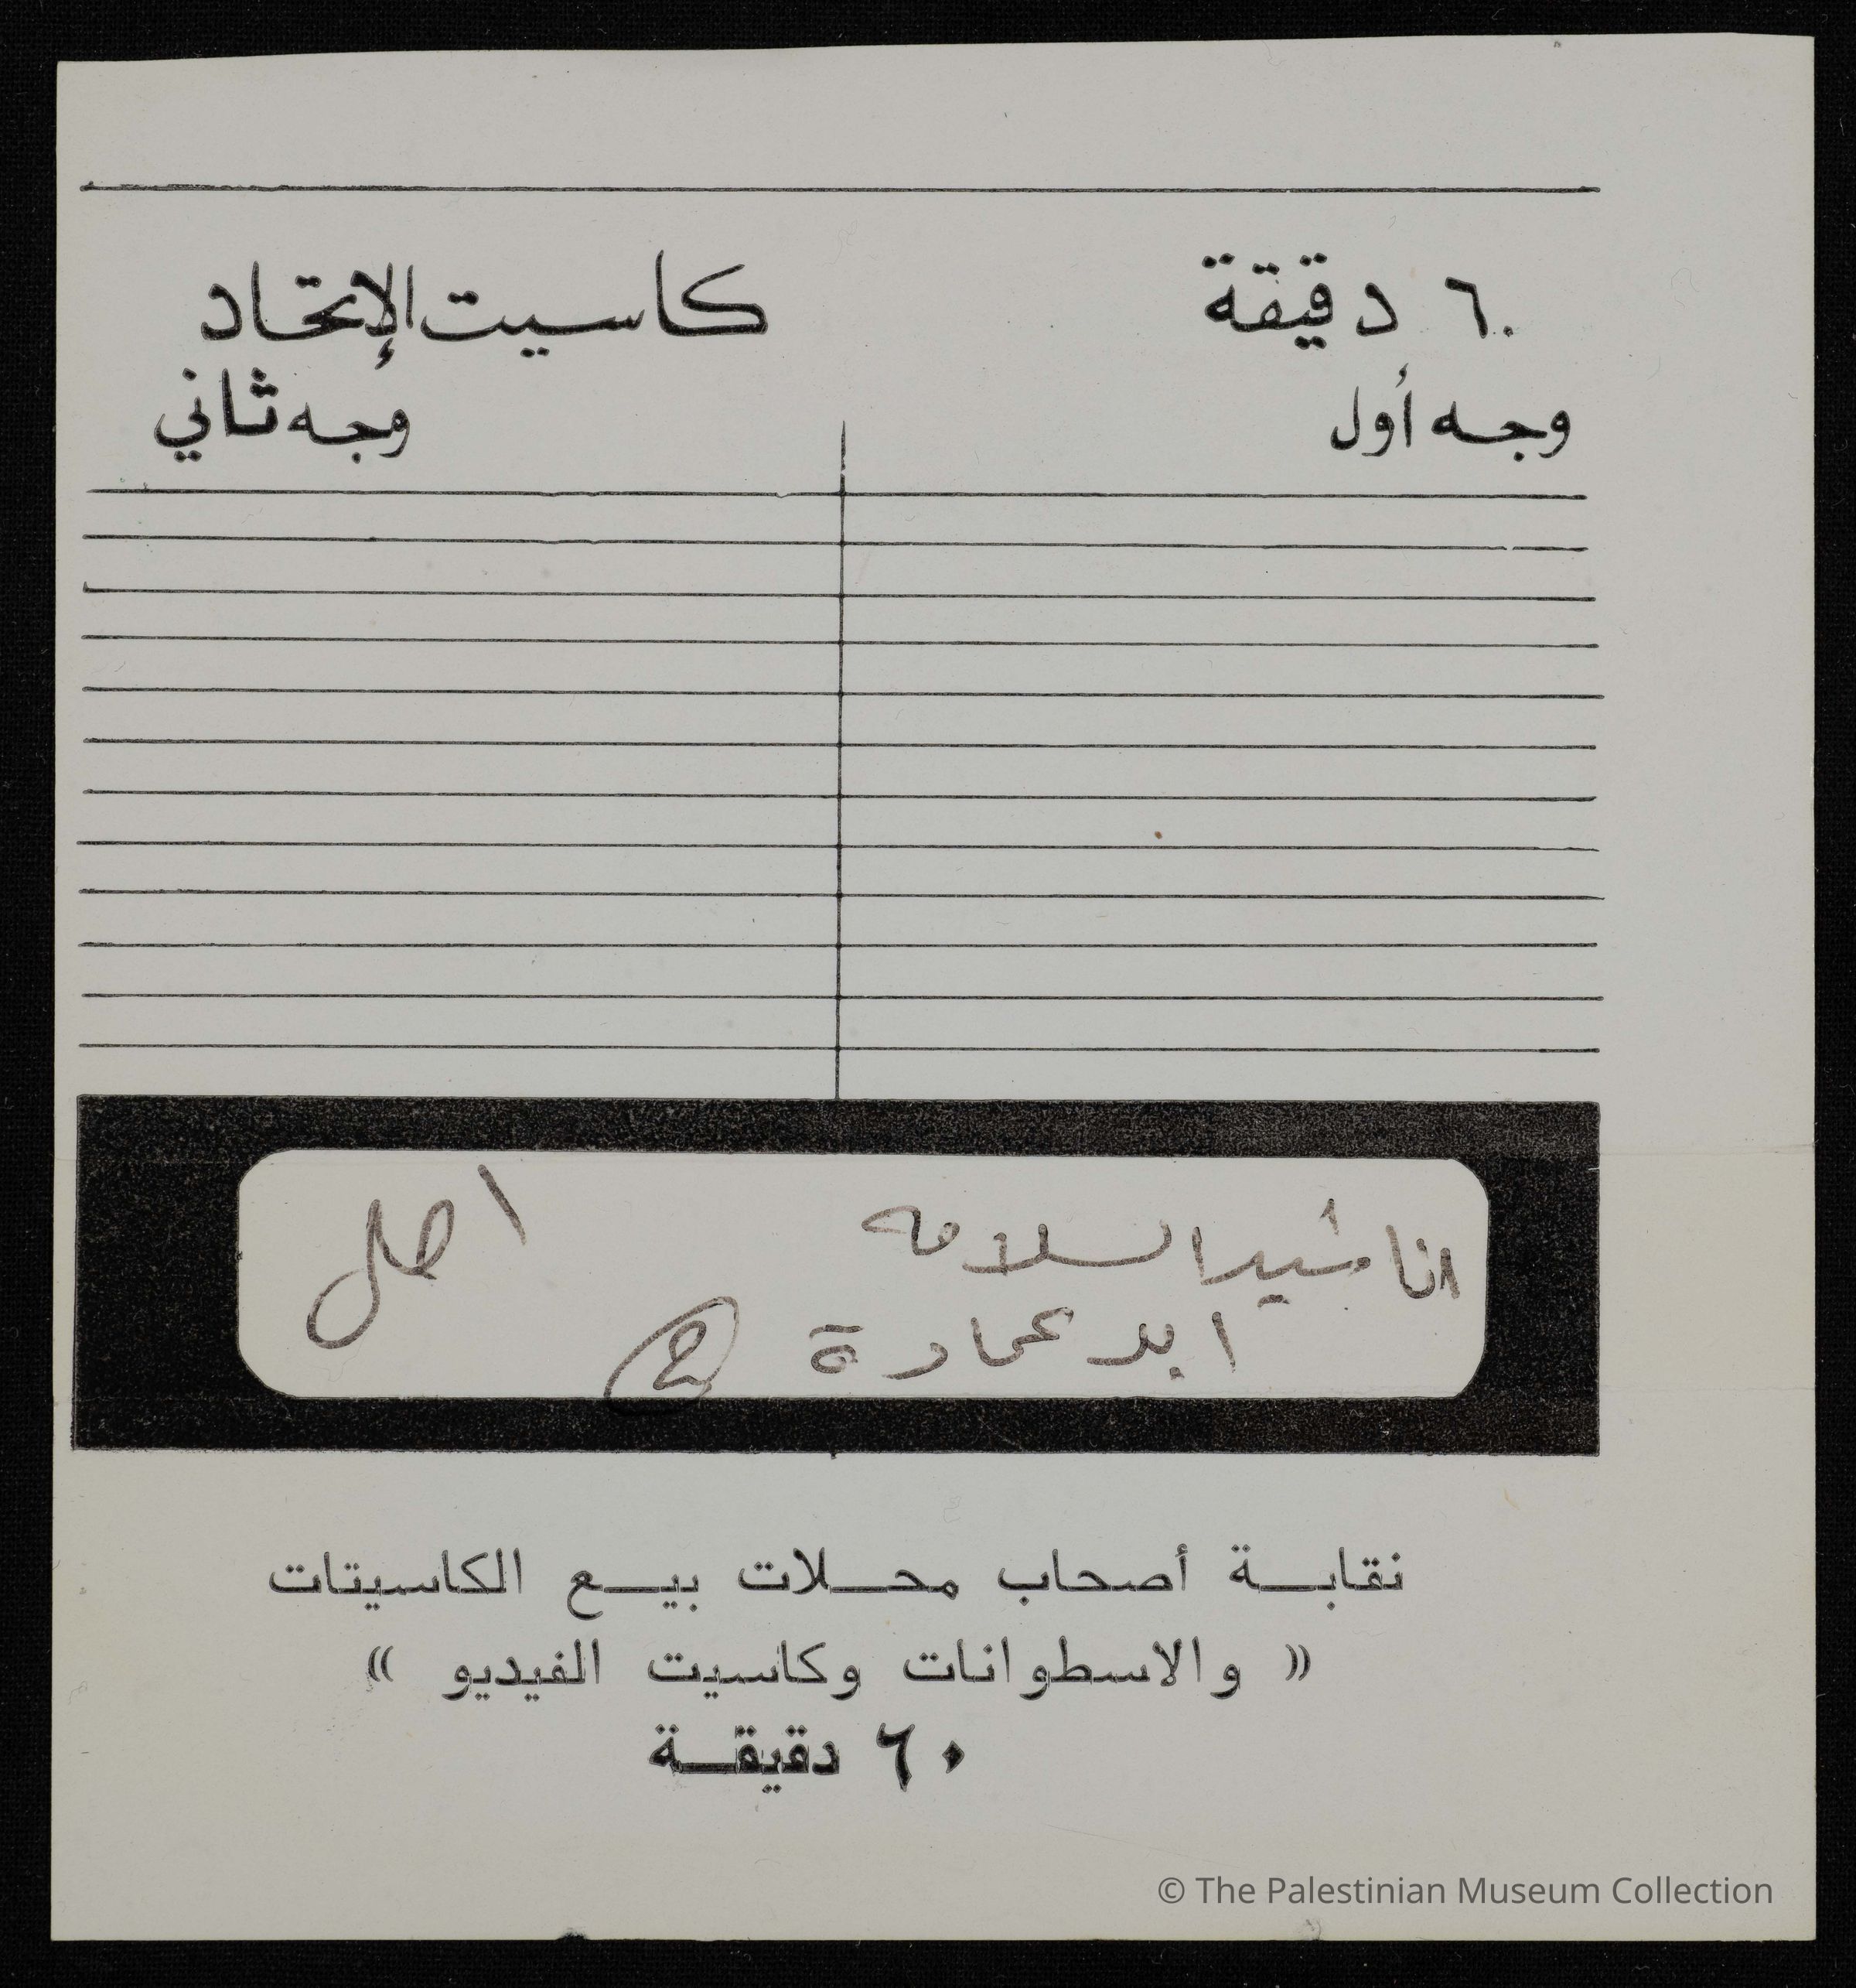 ٦٠ دقيقة كاسيت الإتحاد
وجه أول وجه ثاني
اناشيد السلامه اصل
ابو عمارة ②
نقابة أصحاب محلات بيع الكاسيتات
« والاسطوانات وكاسيت الفيديو »
٦٠ دقيقة
© The Palestinian Museum Collection